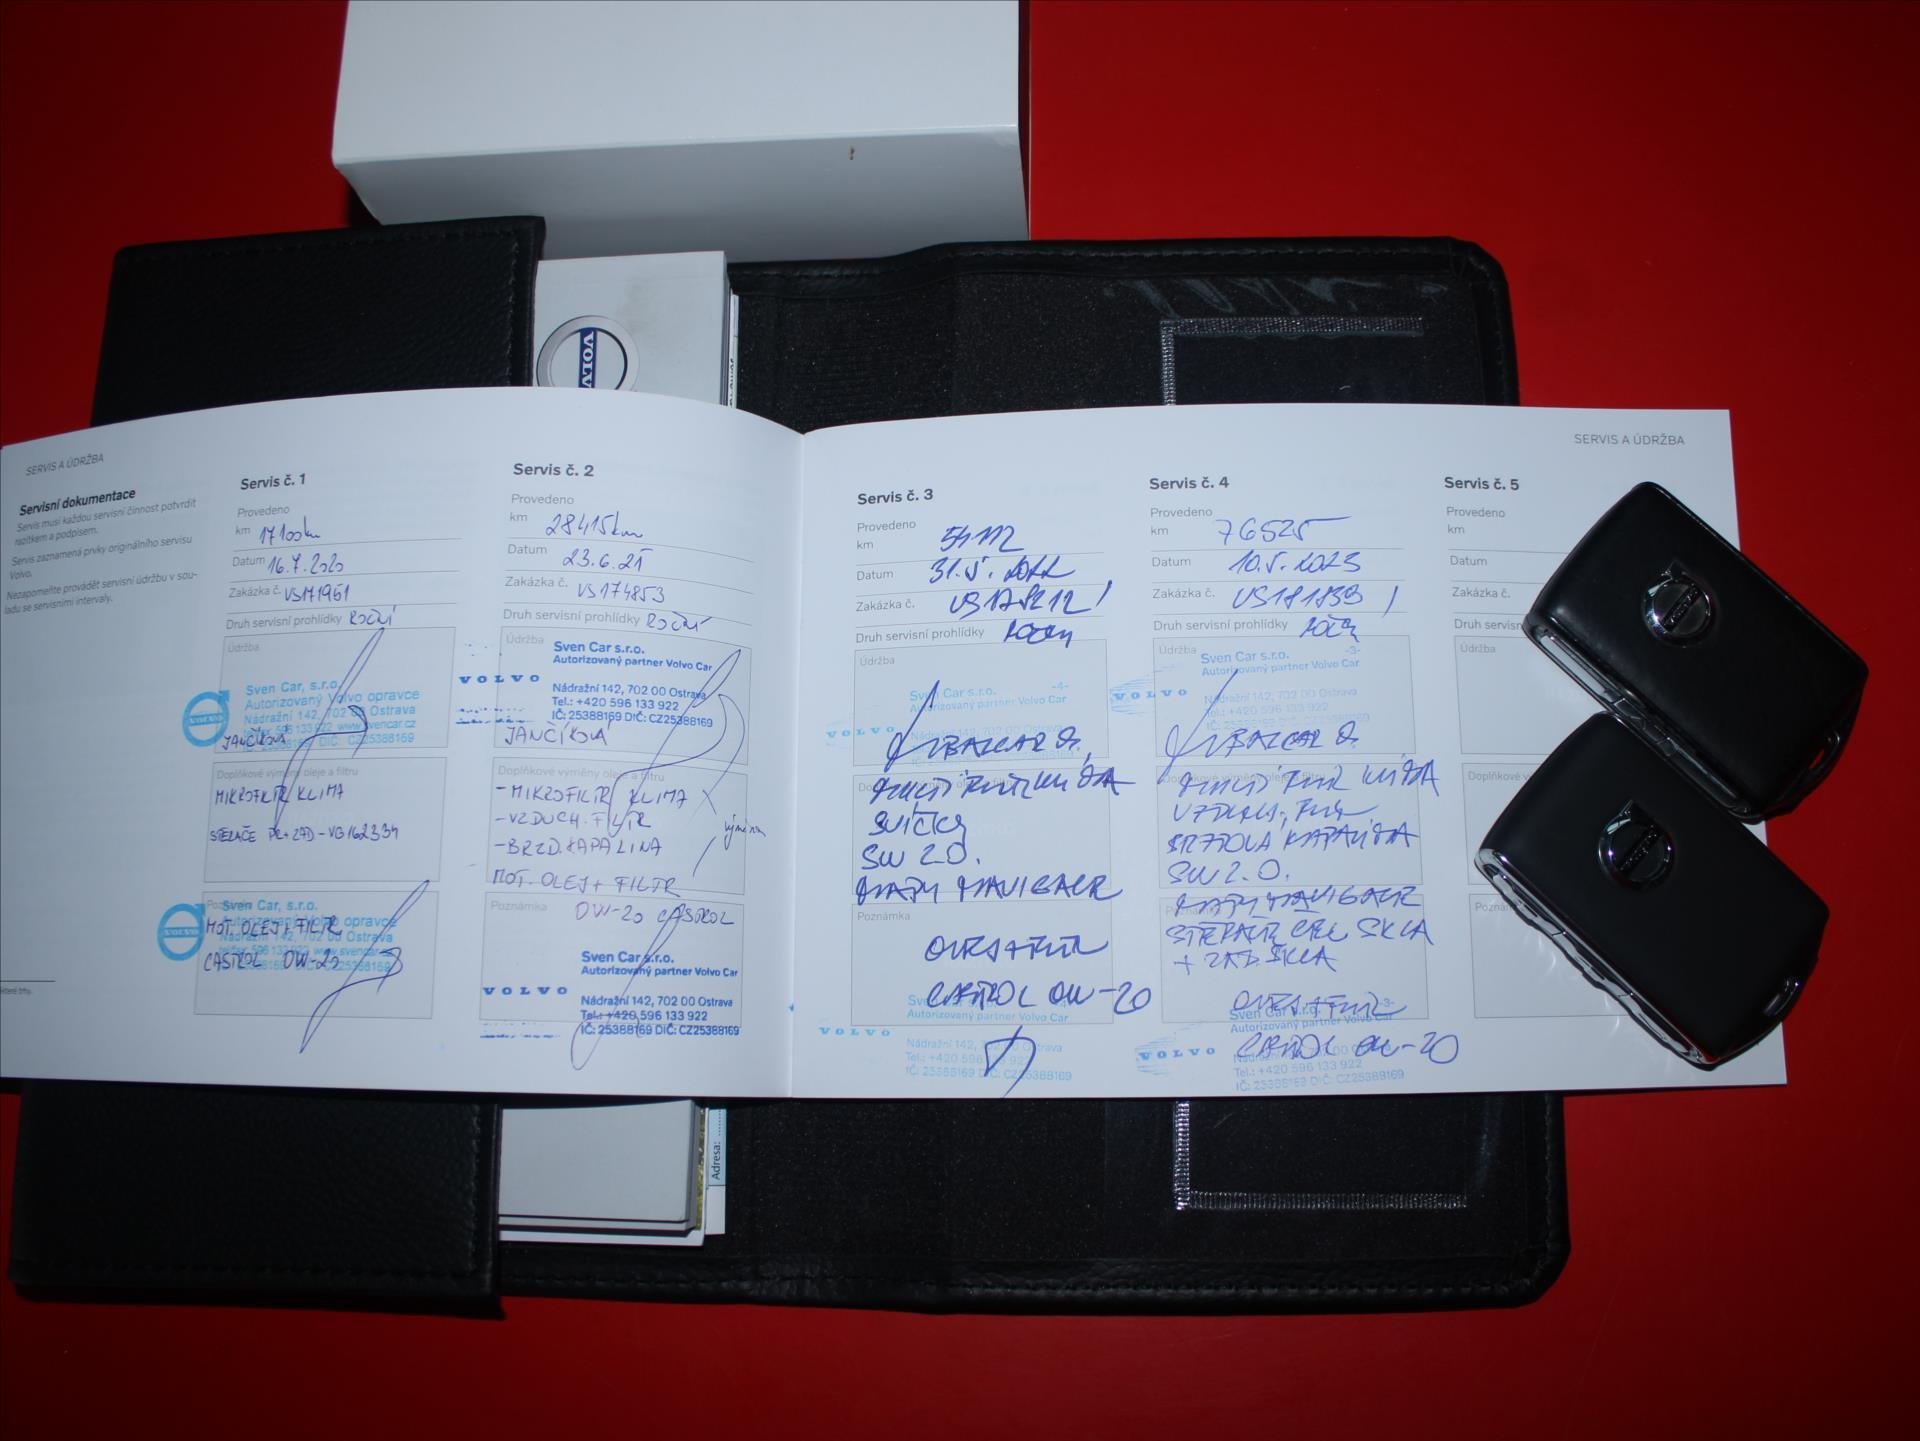 VOLVO
SERVIS A ÚDRŽBA
Servisní dokumentace
Servis musí každou servisní činnost potvrdit
razítkem a podpisem.
Servis zaznamená prvky originálního servisu
Volvo.
Nezapomeňte provádět servisní údržbu v sou-
ladu se servisními intervaly.
Servis č. 1
Provedeno
km 17100km
Datum 16.7.2020
Zakázka č. VS171961
Druh servisní prohlídky ROČNÍ
Údržba
Sven Car, s.r.o.
Autorizovaný Volvo opravce
Nádražní 142, 702 00 Ostrava
596 133 922 www.svencar.cz
DIČ: CZ25388169
JANČÍKOVÁ
Doplňkové výměny oleje a filtru
MIKROFILTR KLIMA
STĚRAČE PŘ+ZAD-VG162334
Sven Car, s.r.o.
Autorizovaný Volvo opravce
MOT. OLEJ+FILTR
Nádražní 142, 702 00 Ostrava
CASTROL OW-20
Servis č. 2
Provedeno
km 28415km
Datum 23.6.21
Zakázka č. VS174853
Druh servisní prohlídky ROČNÍ
Údržba
Sven Car s.r.o.
Autorizovaný partner Volvo Car
VOLVO
Nádražní 142, 702 00 Ostrava
Tel.: +420 596 133 922
IČ: 25388169 DIČ: CZ25388169
JANČÍKOVÁ
Doplňkové výměny oleje a filtru
-MIKROFILTR KLIMA
-VZDUCH. FILTR
-BRZD. KAPALINA
MOT. OLEJ+ FILTR
Poznámka OW-20 CASTROL
Sven Car s.r.o.
Autorizovaný partner Volvo Car
VOLVO
Nádražní 142, 702 00 Ostrava
Tel.: +420 596 133 922
IČ: 25388169 DIČ: CZ25388169
SERVIS A ÚDRŽBA
Servis č. 3
Provedeno
km
Datum 31.5.2022
Zakázka č.
Druh servisní prohlídky
Údržba
Sven Car s.r.o. -4-
Autorizovaný partner Volvo Car
VOLVO
SVÍČKY
SW 2.0.
MAPY NAVIGACE
Poznámka
OLEJ+FILTR
CASTROL OW-20
Autorizovaný partner Volvo Car
VOLVO
Nádražní 142, 702 00 Ostrava
Tel.: +420 596 133 922
IČ: 25388169 DIČ: CZ25388169
Servis č. 4
Provedeno
km 76525
Datum 10.5.2023
Zakázka č. VS181839
Druh servisní prohlídky
Údržba
Sven Car s.r.o. -3-
Autorizovaný partner Volvo Car
VOLVO
Nádražní 142, 702 00 Ostrava
Tel.: +420 596 133 922
BRZDOVÁ KAPALINA
SW 2.0.
MAPY NAVIGACE
+ ZAD. SKLA
OLEJ+FILTR
Sven Car s.r.o. -3-
Autorizovaný partner Volvo Car
VOLVO
CASTROL OW-20
Tel.: +420 596 133 922
IČ: 25388169 DIČ: CZ25388169
Servis č. 5
Provedeno
km
Datum
Zakázka č.
Druh servisní
Údržba
Doplňkové
Adresa: